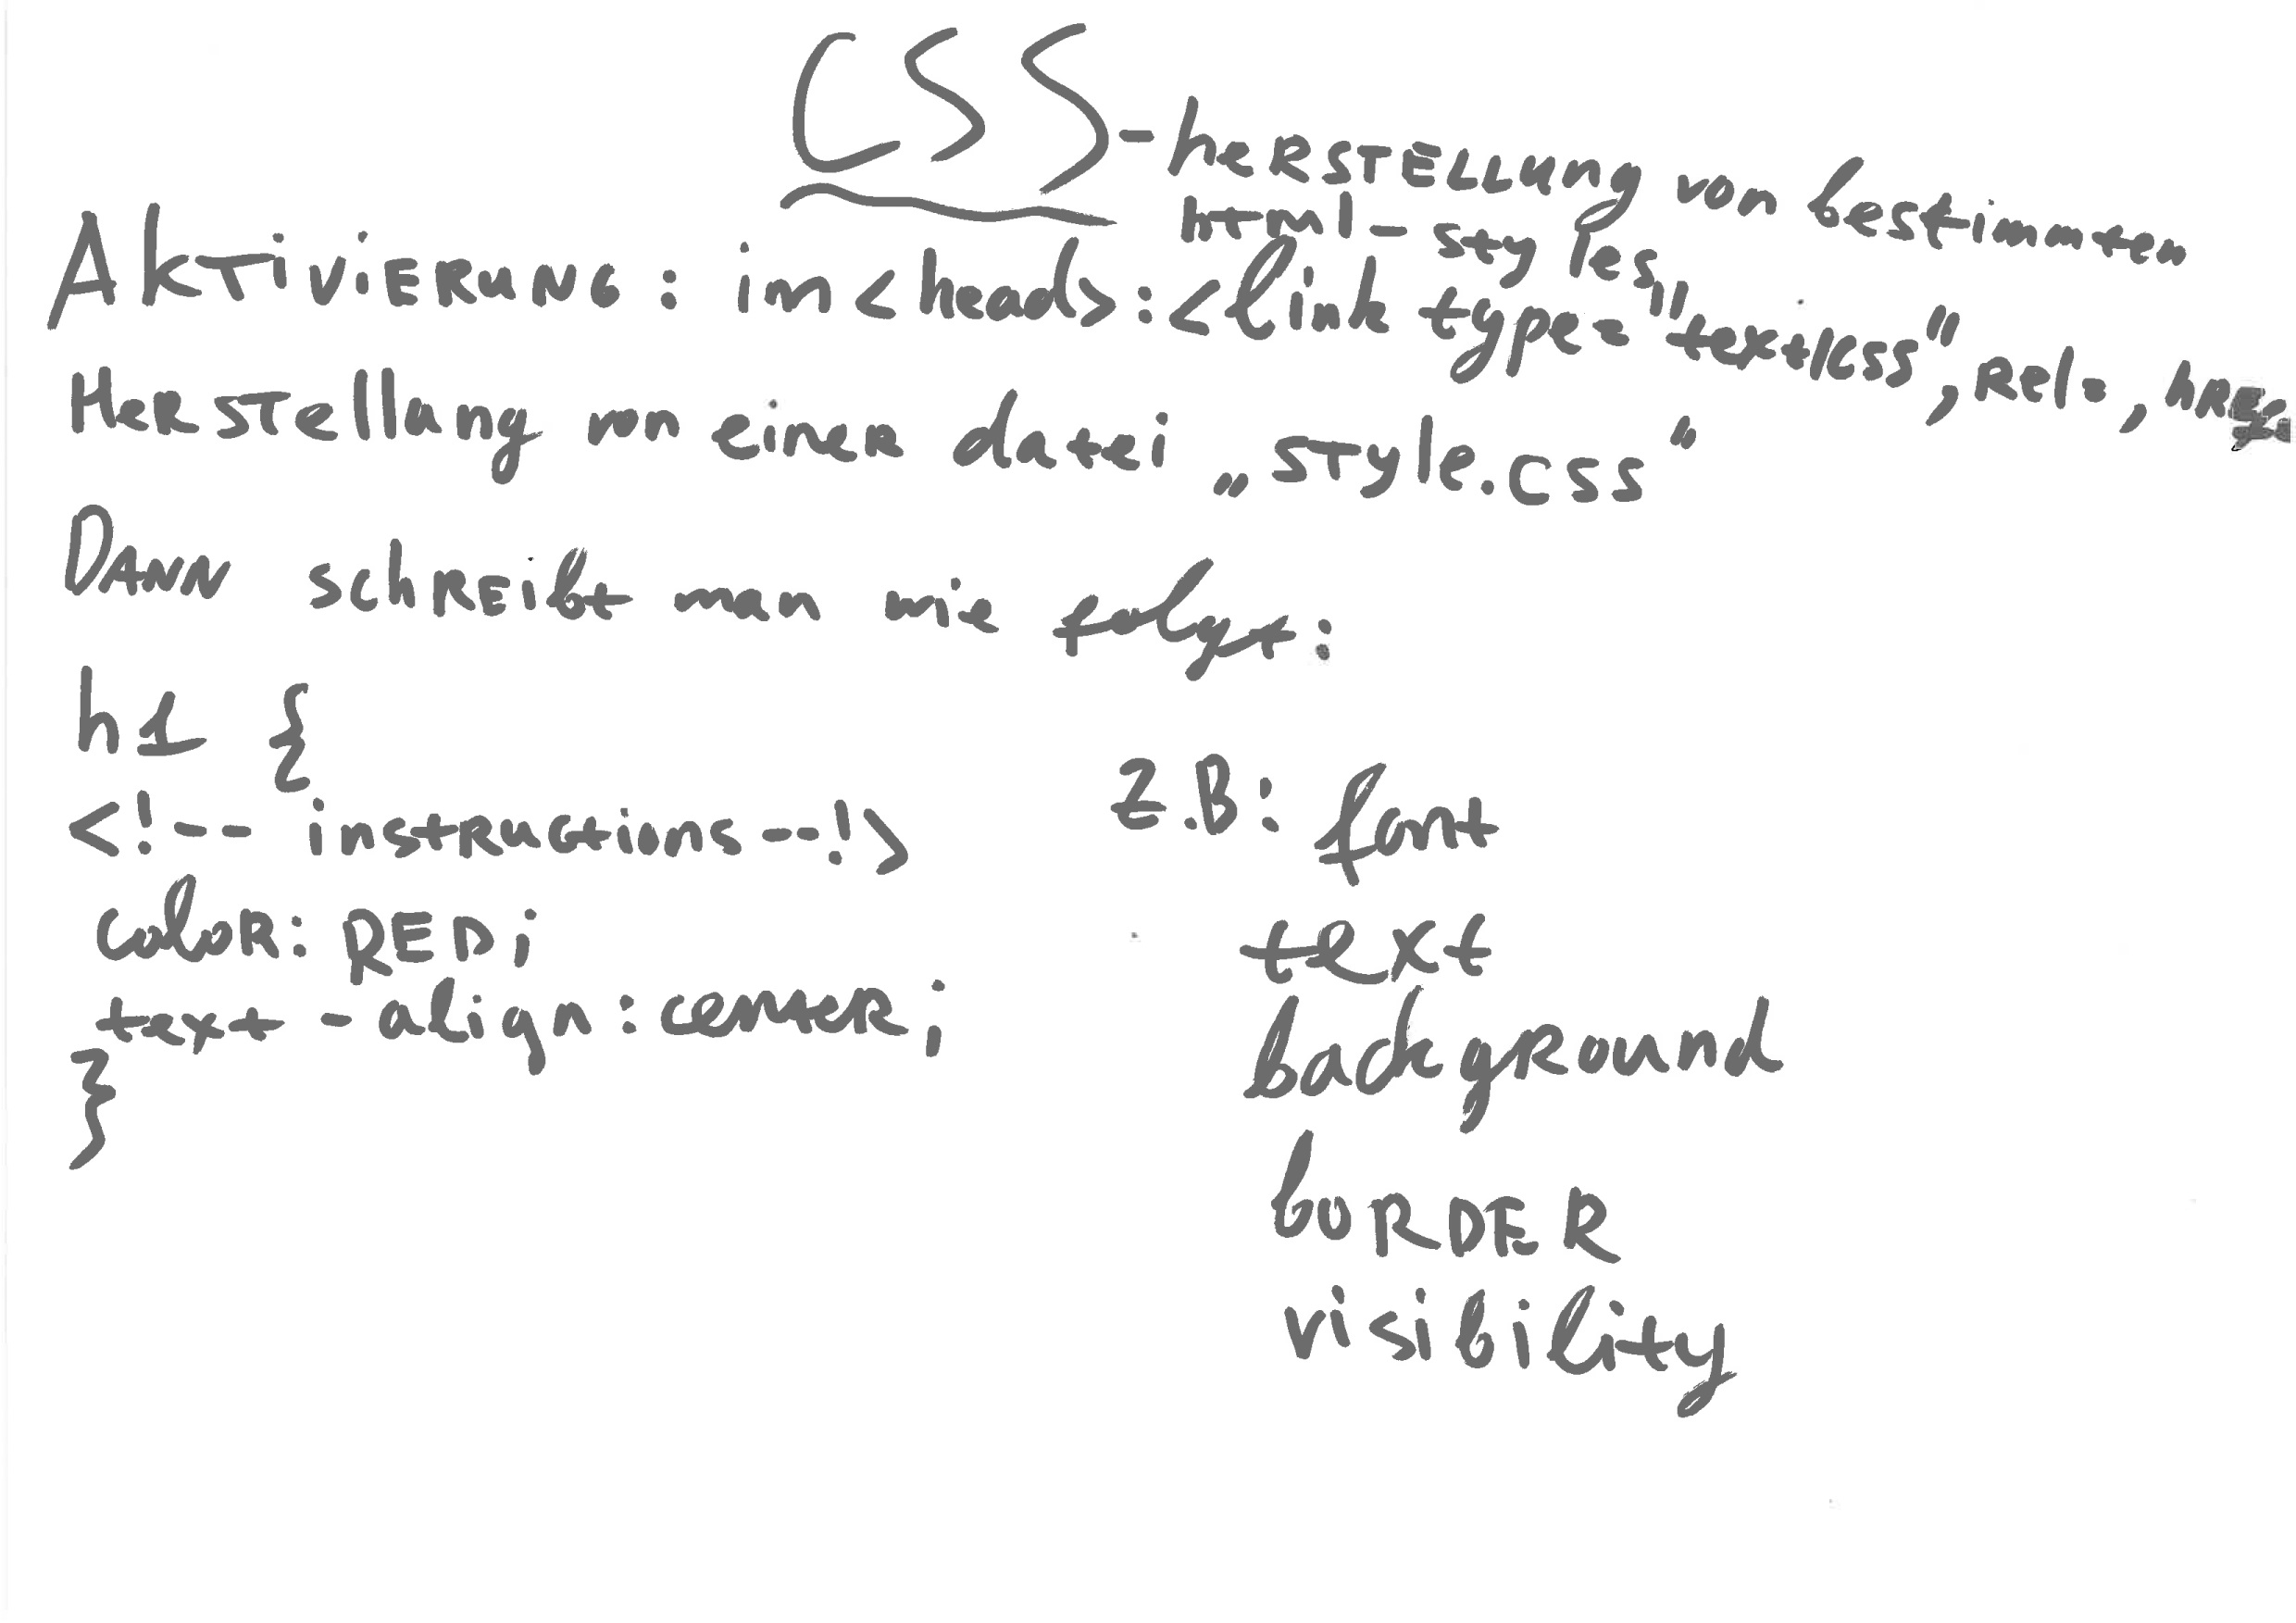 CSS - herstellung von bestimmten
html-styles
Aktivierung: im <head>: <link type="text/css", rel=, href
Herstellung von einer datei „style.css"
Dann schreibt man wie folgt:
h1 {
<!-- instructions --!>
color: RED;
text-align: center;
}
Z.B: font
text
background
border
visibility